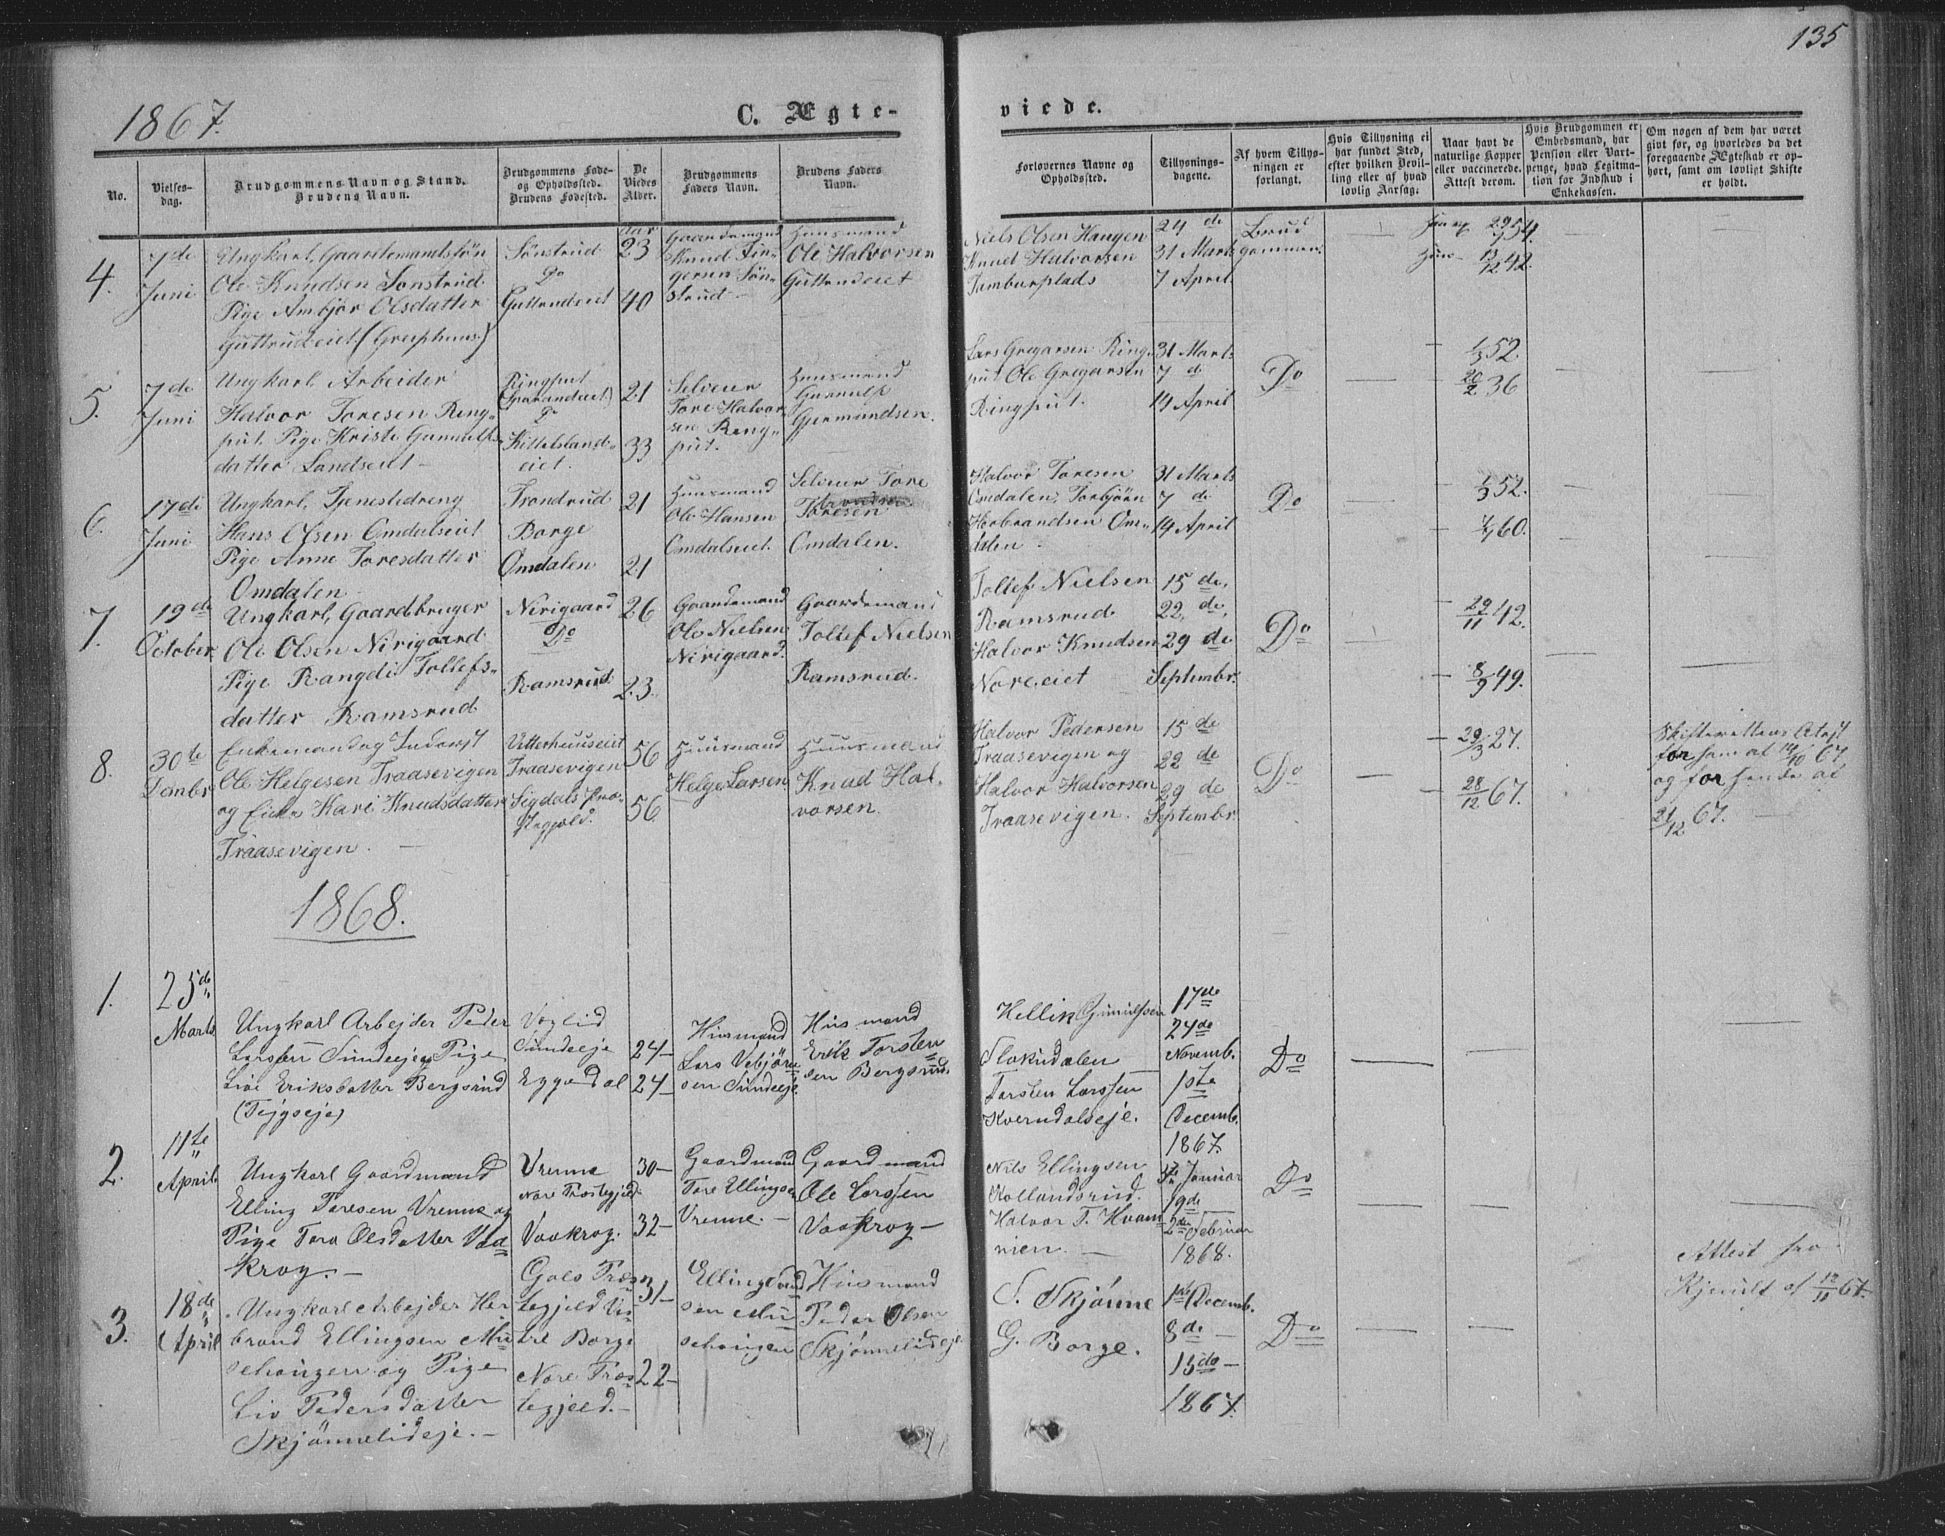 135
1867.
C. Ægte-
viede.
No.
Vielses-
dag.
Brudgommens Navn og Stand.
Brudens Navn.
Brudgommens Føde-
og Opholdssted.
Brudens Fødested.
De
Viedes
Alder.
Brudgommens
Faders Navn.
Brudens Faders
Navn.
Forlovernes Navne og
Opholdssted.
Tillysnings-
dagene.
Af hvem Tillys-
ningen er
forlangt.
Hvis Tillysning ei
har fundet Sted,
efter hvilken Bevil-
ling eller af hvad
lovlig Aarsag.
Naar havt de
naturlige Kopper
eller vaccinerede.
Attest derom.
Hvis Brudgommen er
Embedsmand, har
Pension eller Vart-
penge, hvad Legitima-
tion for Indskud i
Enkekassen.
Om nogen af dem har været
givt før, og hvorledes da det
foregaaende Ægteskab er op-
hørt, samt om lovligt Skifte
er holdt.
4.
7de
Juni
Ungkarl, Gaardemandssøn
Ole Knudsen Sønstrud
Pige Ambjør Olsdatter
Guttrudeiet (Greiphuus)
Sønstrud
Do
Guttrudeiet
Aar
23
40
Gaardemand
Knud Fin-
gersen Søn-
strud
Huusmand
Ole Halvorsen
Guttrudeiet
Niels Olsen Haugen
Knud Halvorsen
Tamburplads
24de
31 Marts
7 April
Brud
gommen
29/9 54.
13/12 42.
5.
7de
Juni
Ungkarl, Arbeider
Halvor Toresen Ring-
put. Pige Kristi Gunnulfs
datter Landseiet
Ringput
Do
Kittelsland-
eiet.
21
33
Selveier
Tore Halvor-
sen Ring-
put.
Huusmand
Gunnulf
Germundsen.
Lars Gregarsen Ring-
put Ole Gregarsen
Ringput.
31 Marts
7 de
14 April
Do
1/3 52.
20/2 36
6.
17de
Juni
Ungkarl, Tjenestedreng
Hans Olsen Omdalseiet
Pige Anne Toresdatter
Omdalen
Trondrud
Borge
Omdalen
21
21
Huusmand
Ole Hansen
Omdalseiet.
Selveier Tore
Toresen
Omdalen.
Halvor Toresen
Omdalen, Torbjørn
Herbrandsen Om-
dalen
31 Marts
7 de
14 April
Do
1/3 52.
60.
7.
19de
October
Ungkarl, Gaardbruger
Ole Olsen Nirigaard
Pige Rangdi Tollefs-
datter Ramsrud
Nirigaard
Do
Ramsrud
26
23
Gaardemand
Ole Nielsen
Nirigaard.
Gaardemand
Tollef Nielsen
Ramsrud.
Tollef Nielsen
Ramsrud
Halvor Knudsen
Noreeiet
15 de,
22 de,
29 de
Septembr.
Do
29/11 42.
8/9 49.
8.
30te
Dcmbr
Enkemand og Inderst
Ole Helgesen Traasevigen
og Enke Kari Knudsdatter
Traasevigen.
Uttershuuseiet
Traasevigen
Sigdals Præ-
stegjeld.
56
56
Huusmand
Helge Larsen
Huusmand
Knud Hal-
vorsen.
Halvor Pedersen
Traasevigen og
Halvor Halvorsen
Traasevigen.
15 de
22 de
29 de
Septembr.
Do
29/3 27.
28/12 67.
Skifterettens Attest
for ham af 14/10 67
og for hende af
21/12 67.
1868.
1.
25de
Marts
Ungkarl Arbejder Peder
Larsen Sundeeje, Pige
Live Eriksdatter Bergsrud
Sundeeje
Eggedal
24
24
Husmand
Lars Vebjørn-
sen Sundeeje.
Husmand
Erik Torsten-
sen Bergsrud.
Hellik Gunulfsen
Flokudalen
Torsten Larssen
Kverndalseje.
17de
24de
Novemb.
1ste
Decemb.
1867.
Do
2.
11te
April
Ungkarl Gaardmand
Elling Toresen Vrenne og
Pige Tora Olsdatter Vaa-
krog.
Vrenne
Nore Præstegjeld.
Vaakrog.
30
32
Gaardmand
Tore Ellingsen
Vrenne.
Gaardmand
Ole Larssen
Vaakrog
Nils Ellingsen
Kollandsrud.
Halvor T. Kvam-
nien.
Januar
19de
2den Februar
1868.
Do
3.
18de
April
Ungkarl Arbejder Her-
brand Ellingsen Mu-
sehaugen og Pige
Liv Pedersdatter
Skjønnelideje.
Gols Præs-
tegjeld
Borge
Nore Præs-
tegjeld.
31
22
Elling
sen Mu
sehaugen
Husmand
Peder Olsen
Skjønnelideje
S. Skjønne
G. Borge.
1ste Decemb.
8de
15de
1867.
Do
Attest fra
af 12/11 67.